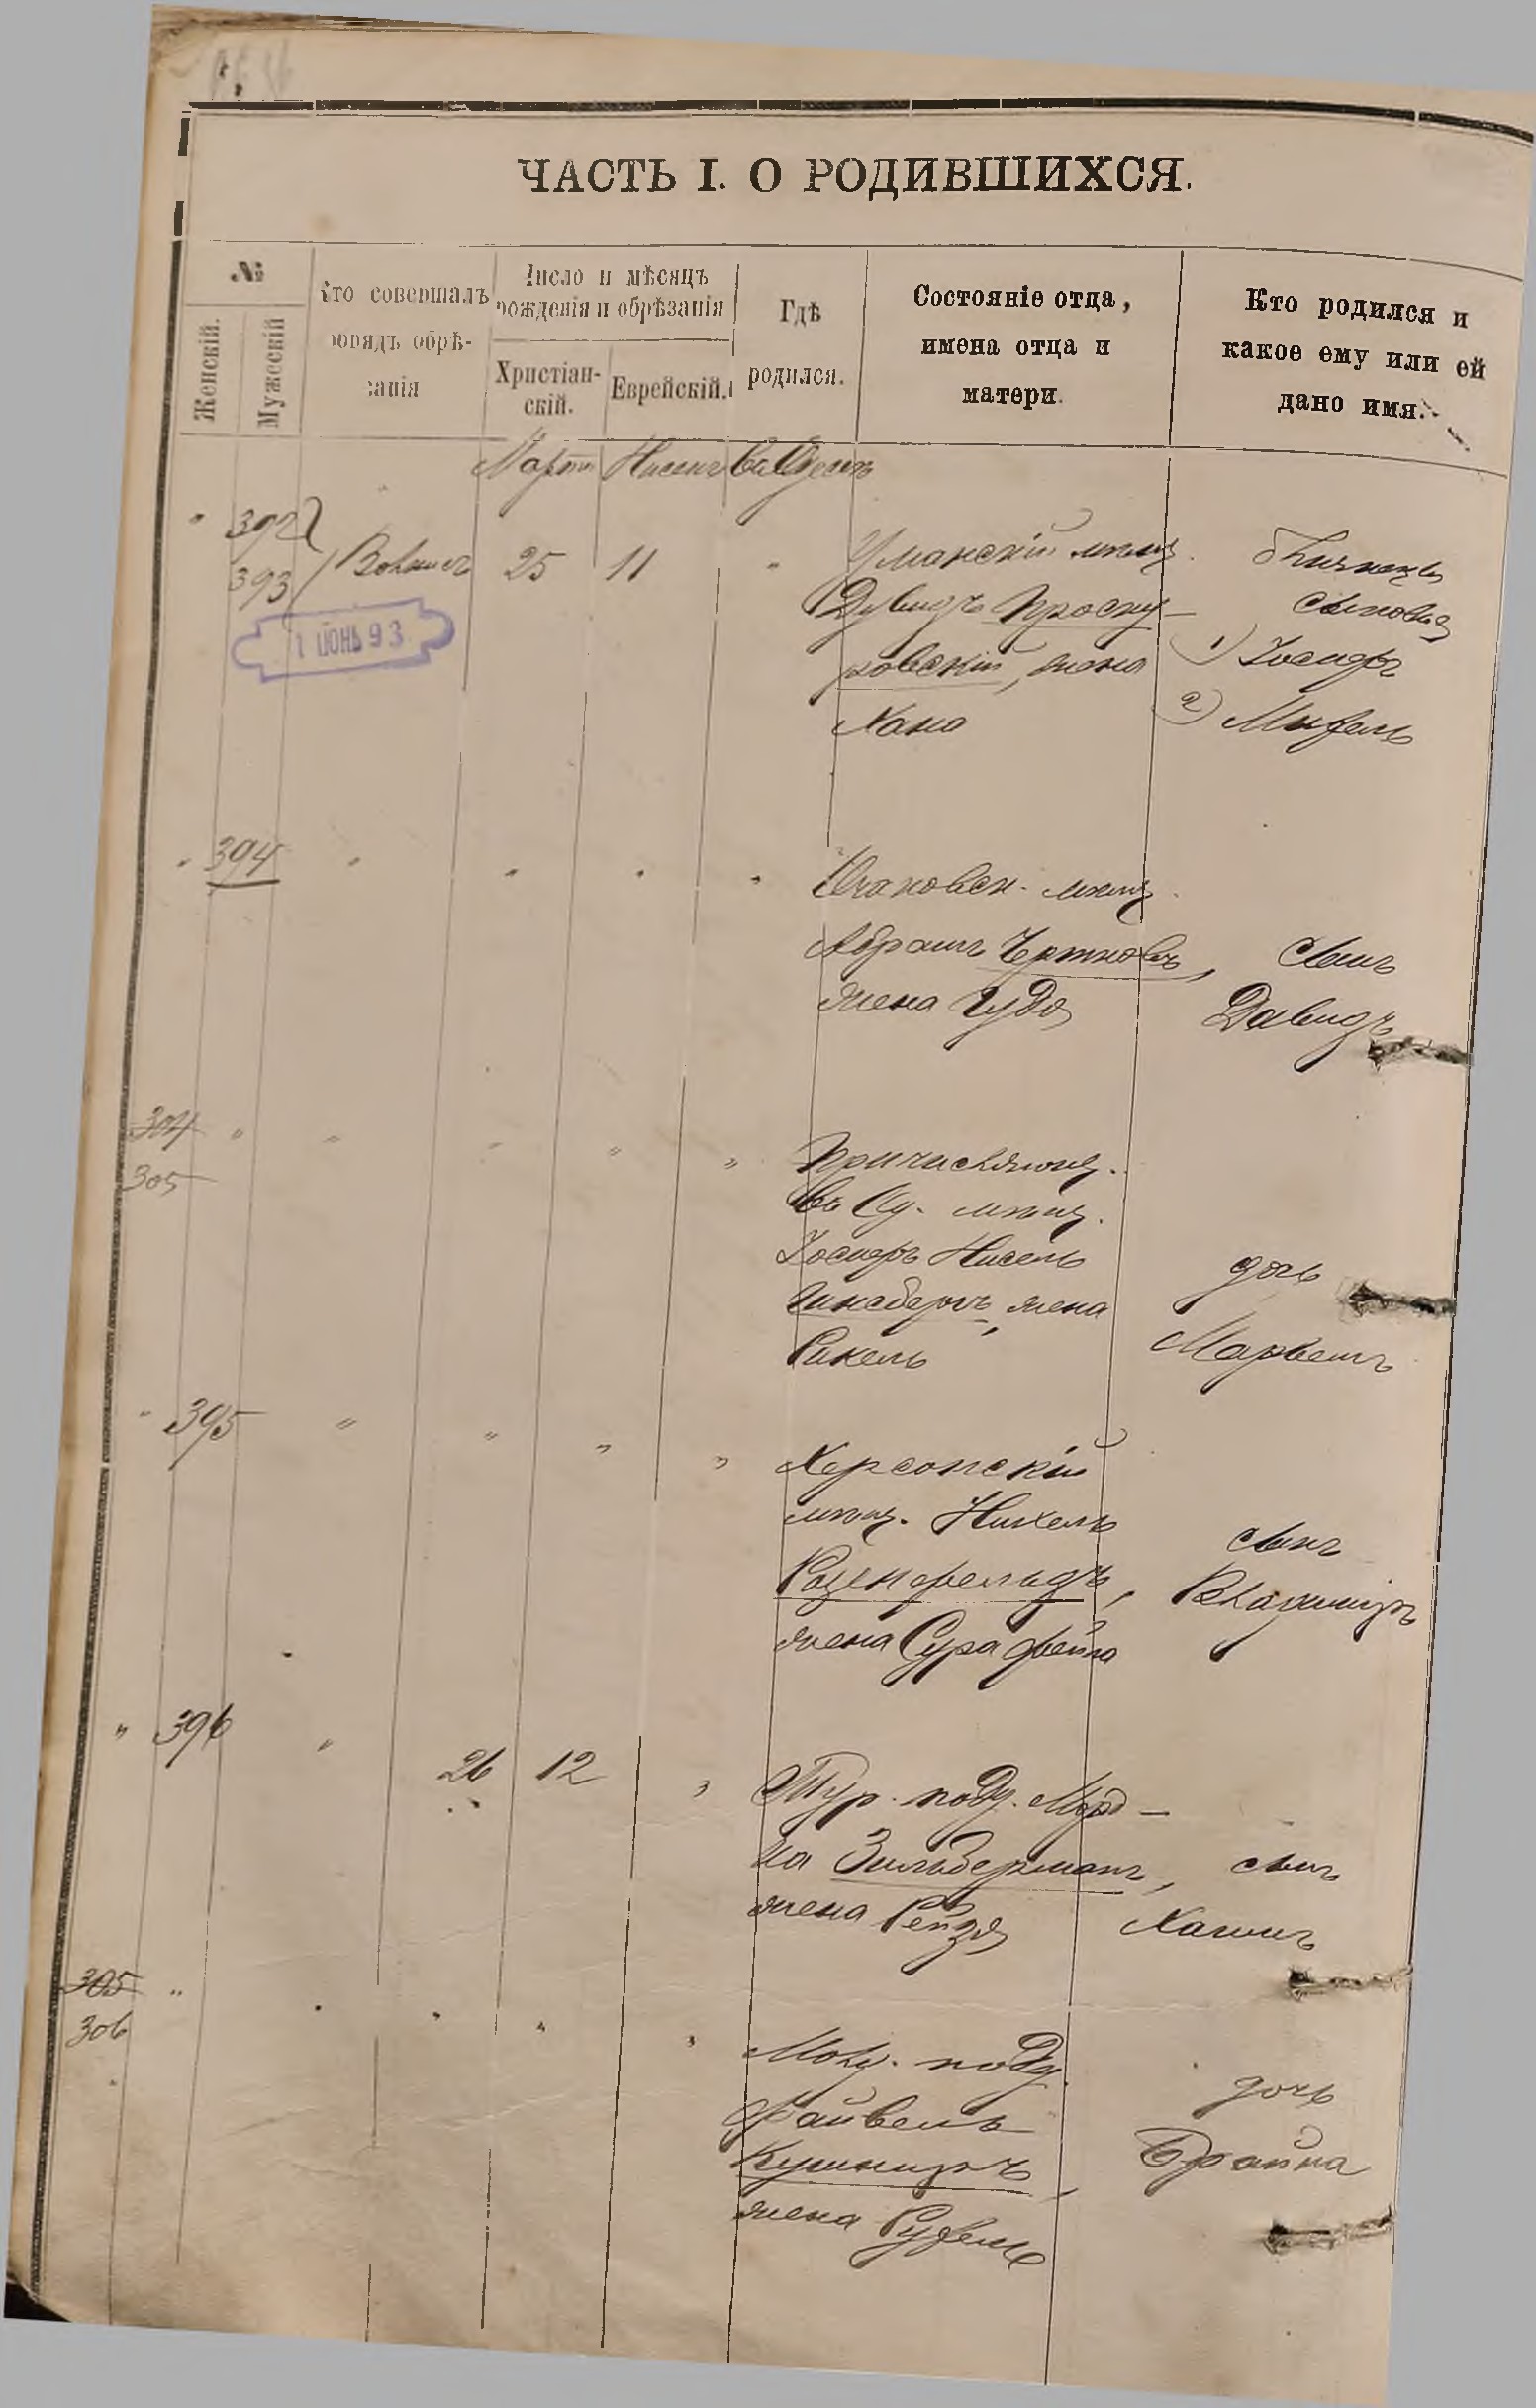 ЧАСТЬ I. О РОДИВШИХСЯ.
№
Женскій.
Мужескій
то совершалъ
обрядъ обрѣ-
занія
Число и мѣсяцъ
рожденія и обрѣзанія
Христіан-
скій.
Еврейскій.
Гдѣ
родился.
Состояніе отца,
имена отца и
матери.
Кто родился и
какое ему или ей
дано имя.
Мартъ Нисенъ Въ Одессѣ
" 392
393 25 11 "
1 ІЮНЬ 93
Уманскій мѣщ.
Дувидъ Проску-
ровскій, жена
Хана
близнецы
сыновья
1) Іосифъ
2) Михель
" 394 " " " "
Очаковск. мѣщ.
Абрамъ Чертковъ,
жена Гудя
сынъ
Давидъ
304 " " " " "
305
Причисляющ.
въ Од. мѣщ.
Іосифъ Нисель
Гинсбергъ, жена
Рикель
дочь
" 395 " " " "
Херсонскій
мѣщ. Нихель
Розенфельдъ,
жена Сура Фейга
сынъ
Владиміръ
" 396 " 26 12 "
Тур. подд. Морд-
ка Зильберманъ,
жена Рейзя
сынъ
Хаимъ
305 " " " " "
306
Молд. подд.
Файвель
Кушниръ,
жена Рухель
дочь
Брайна